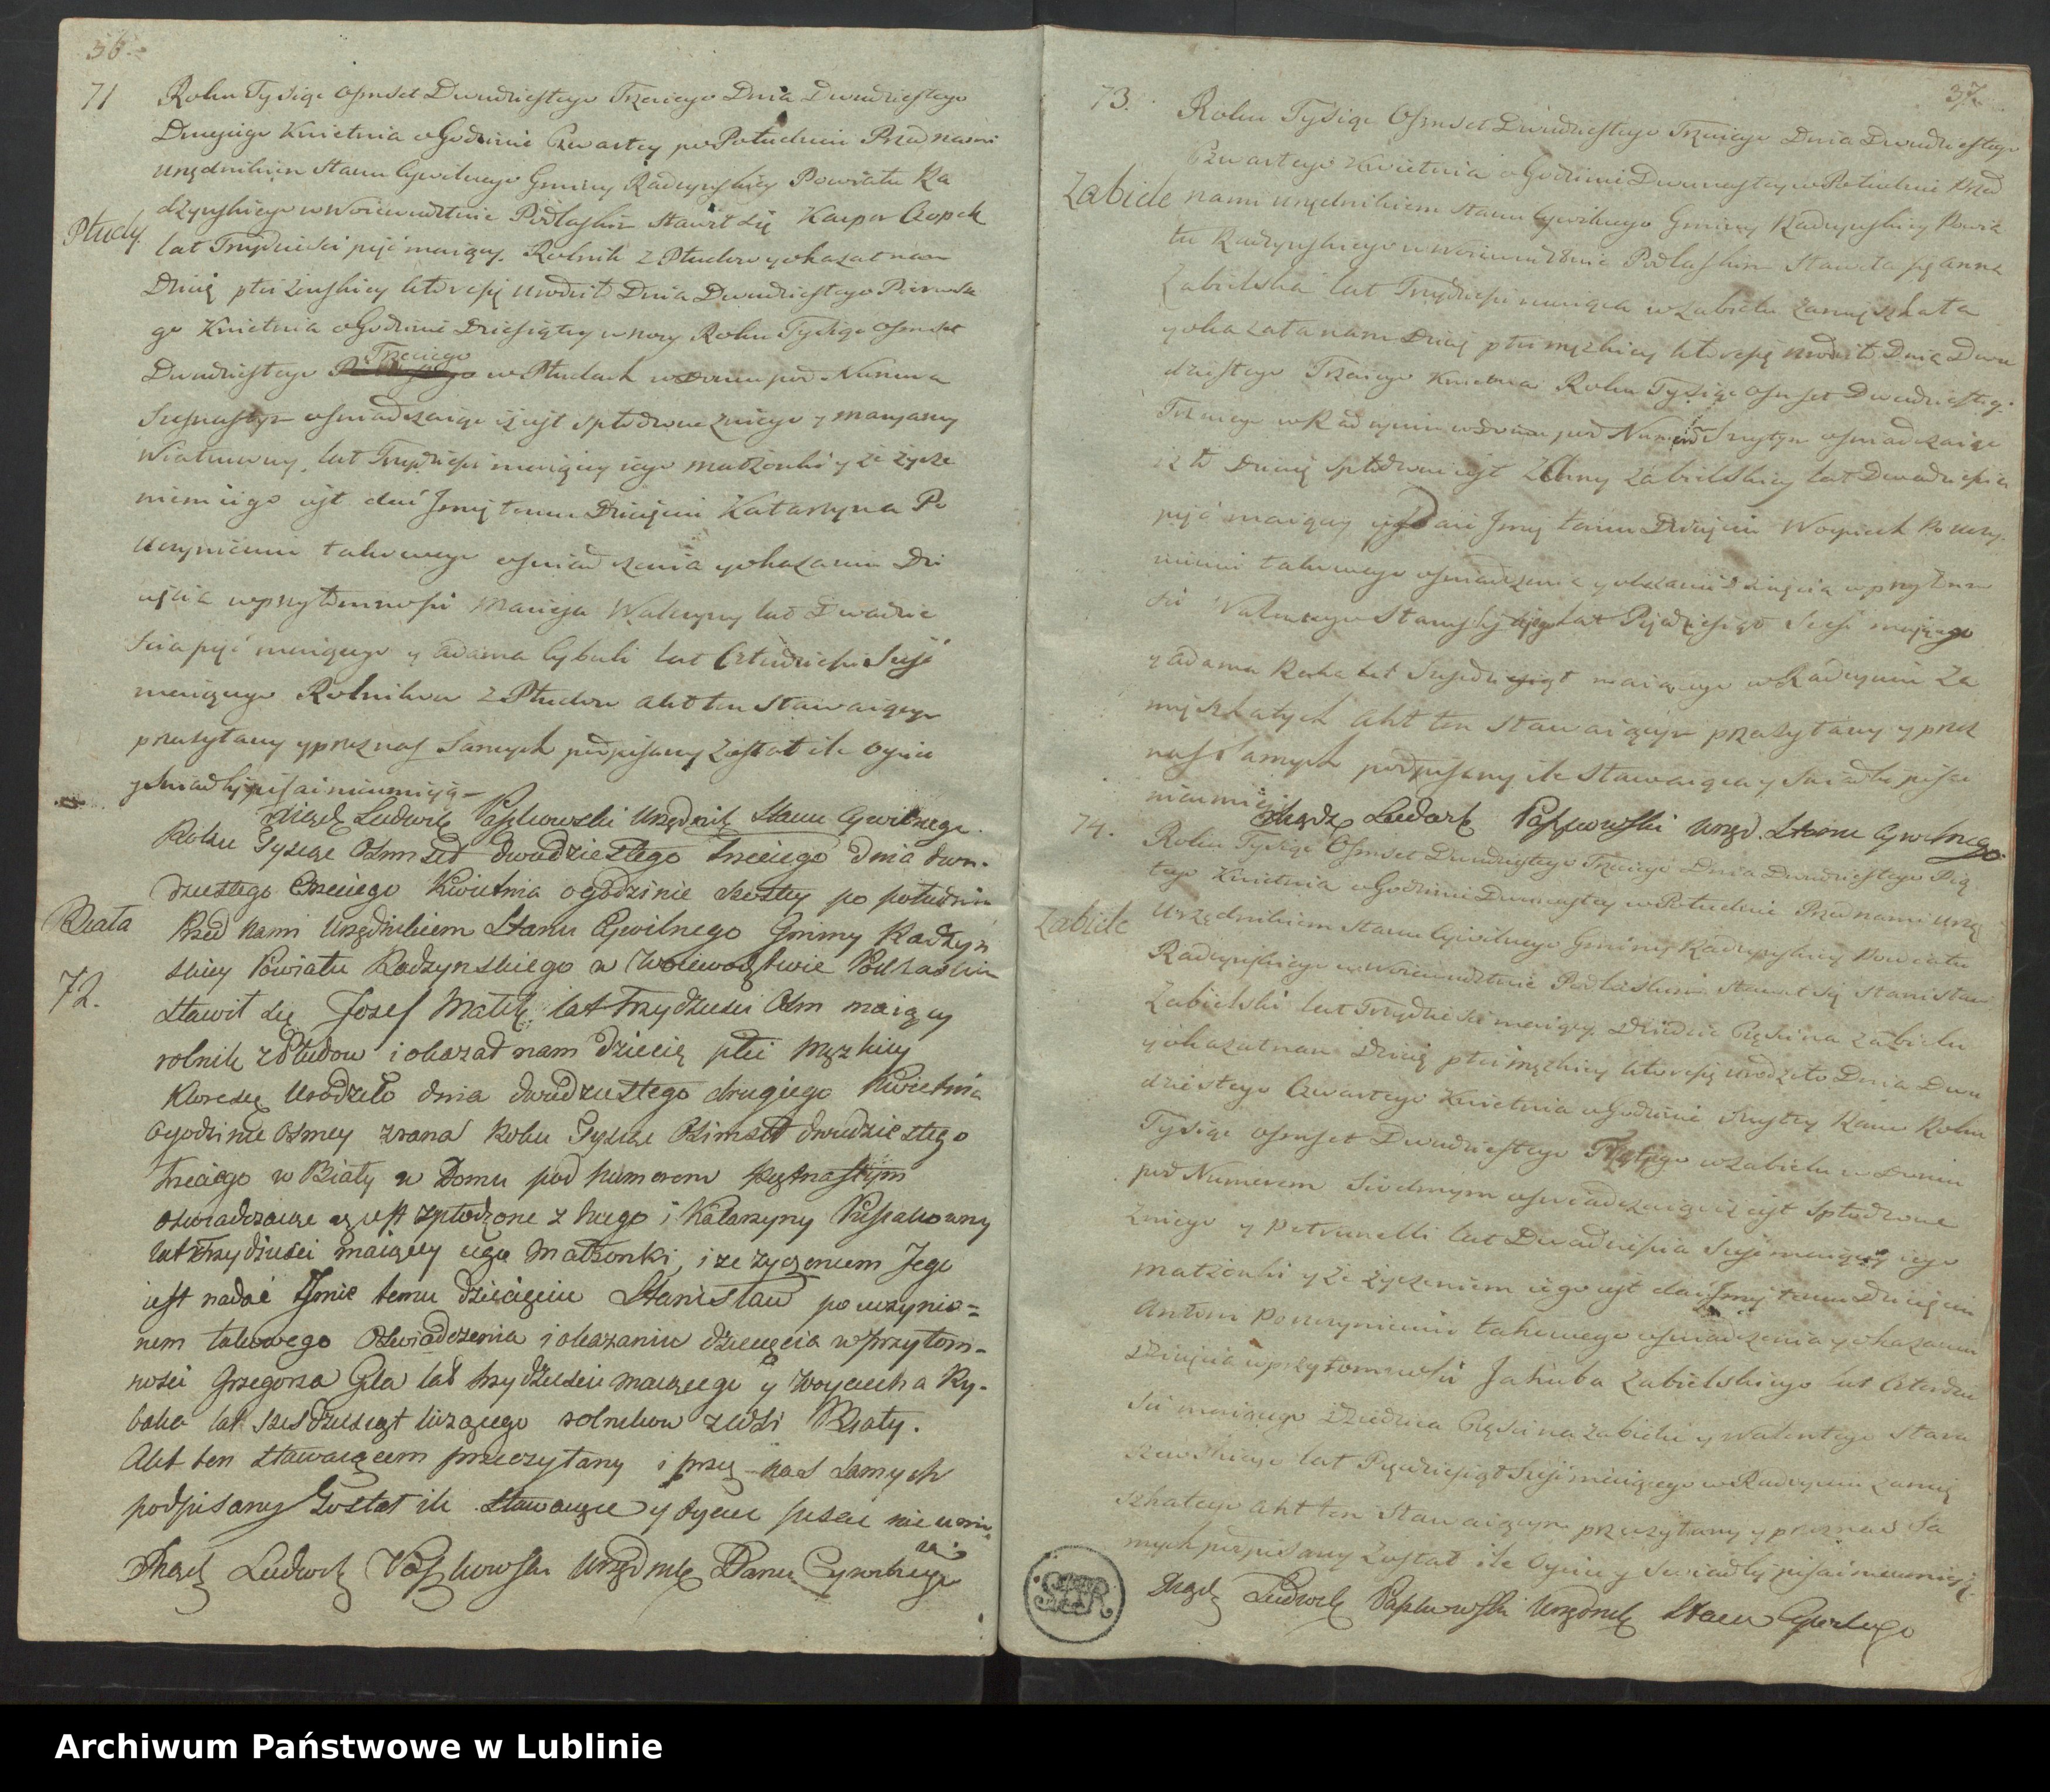 36.
71
Roku Tysiąc Osmset Dwudziestego Trzeciego Dnia Dwudziestego
Drugiego Kwietnia o Godzinie Czwartey po Południu Przed nami
urzędnikiem Stanu Cywilnego Gminy Radzynskiey Powiatu Ra
dzynskiego w Woiewodztwie Podlaskim Stawił się Kacper Czopek
Płudy.
lat Trzydzieści pięć maiący Rolnik z Płudow y okazał nam
Dzicię płci żenskiey które się urodziło Dnia Dwudziestego Pierwsze
go Kwietnia o Godzinie Dziesiątey w nocy Roku Tysiąc Osmset
Trzeciego
Dwudziestego w Płudach w Domu pod Numerem
Szesnastym osmiadczaiąc iż iest spłodzone z niego y Maryanny
lat Trzydzieści maiącey iego małżonki y że życze
niem iego iest dać Jmię temu Dziecięciu Katarzyna Po
uczynieniu takowego osmiadczenia y okazaniu Dzi
ięcia w przytomności Macieja Waluzny lat Dwadzie
ścia pięć maiącego y Adama Cybuli lat Czterdzieści Sześć
maiącego Rolnikow z Płudow Akt ten Stawaiącym
przeczytany y przez nas Samych podpisany Został ile Oyciec
y Swiadky pisać nieumieią
Xiądz Ludwik Paszkowski Urzędnik Stanu Cywilnego.
Roku Tysiąc Osmset dwudziestego trzeciego dnia dwu-
dziestego trzeciego Kwietnia o godzinie szostey po południu
Biała
Przed Nami Urzędnikiem Stanu Cywilnego Gminy Radzyn
skiey Powiatu Radzynskiego w Woiewodztwie Podlaskim
72.
Stawił się Jozef Małek lat trzydzieści Osm maiący
rolnik z Płudow i okazał nam dziecię płci męzkiey
Ktore się Urodziło dnia dwudziestego drugiego Kwietnia
o godzinie osmey zrana Roku Tysiąc Osimset dwudziestego
trzeciego w Biały w Domu pod Numerem piętnastym
Oswiadczaiąc iz iest zpłodzone z niego i Katarzyny
lat trzydzieści maiącey iego Małżonki, i ze zyczeniem Jego
iest nadać Jmie temu dziecięciu Stanisław po uczynio=
nem takowego Oswiadczenia i okazaniu dziecięcia w przytom-
ności Grzegorza Gila lat trzydzieści maiącego y Woyciecha Ry-
baka lat szesdziesiąt liczącego rolnikow z wsi Biały.
Akt ten stawaiącem przeczytany i przez nas Samych
podpisany Został ile Stawaiące y Oyciec pisać nie umie-
ią
Xiądz Ludwik Paszkowski Urzędnik Stanu Cywilnego
37.
73.
Roku Tysiąc Osmset Dwudziestego Trzeciego Dnia Dwudziestego
Czwartego Kwietnia o Godzinie Dwunastey w Południe Przed
Zabiele
nami urzędnikiem Stanu Cywilnego Gminy Radzynskiey Powia
tu Radzynskiego w Woiewodztwie Podlaskim Stawiła się Anna
Zabielska lat Trzydzieści maiąca w Zabielu Zamięszkała
y okazała nam Dzicię płci męzkiey które się urodziło Dnia Dwu
dziestego Trzeciego Kwietnia Roku Tysiąc Osmset Dwudziestego
Trzeciego w Radzyniu w Domu pod Numerem Szustym osmiadczaiąc
iż to Dzicię spłodzone iest z Anny Zabielskiey lat Dwadzieścia
pięć maiącey y dać Jmię temu Dziecięciu Woyciech Po uczy
nieniu takowego osmiadczenia y okazaniu Dziecięcia w przytomno
ści Walentego lat Pięćdziesiąt Sześć maiącego
y Adama lat Sześdziesiąt maiącego w Radzyniu Za
mięszkałych Akt ten Stawaiącym przeczytany y przez
nas Samych podpisany ile Stawaiąca y Swiadki pisać
nieumieią
Xiądz Ludwik Paszkowski Urzęd. Stanu Cywilnego
74.
Roku Tysiąc Osmset Dwudziestego Trzeciego Dnia Dwudziestego Pią
tego Kwietnia o Godzinie Dwunastey w Południe Przed nami Urzę
Zabiele
Urzędnikiem Stanu Cywilnego Gminy Radzynskiey Powiatu
Radzynskiego w Woiewodztwie Podlaskim Stawił się Stanisław
Zabielski lat Trzydzieści maiący Dziedzic Części na Zabielu
y okazał nam Dzicię płci męzkiey które się urodziło Dnia Dwu
dziestego Czwartego Kwietnia o Godzinie Szustey Rano Roku
Tysiąc Osmset Dwudziestego Trzeciego w Zabielu w Domu
pod Numerem Siodmym oswiadczaiąc iż iest Spłodzone
z niego y Petrunelli lat Dwadzieścia Sześć maiącey iego
małżonki y że życzeniem iego iest dać Jmię temu Dziecięciu
Antoni Po uczynieniu takowego osmiadczenia y okazaniu
Dziecięcia w przytomności Jakuba Zabielskiego lat Czterdzie
ści maiącego Dziedzica Części na Zabielu y Walentego Stani
szewskiego lat Pięćdziesiąt Sześć maiącego w Radzyniu Zamię
szkałego Akt ten Stawaiącym przeczytany y przez nas Sa
mych podpisany Został ile Oyciec y Swiadky pisać nieumieią.
Xiądz Ludwik Paszkowski Urzędnik Stanu Cywilnego
Archiwum Państwowe w Lublinie